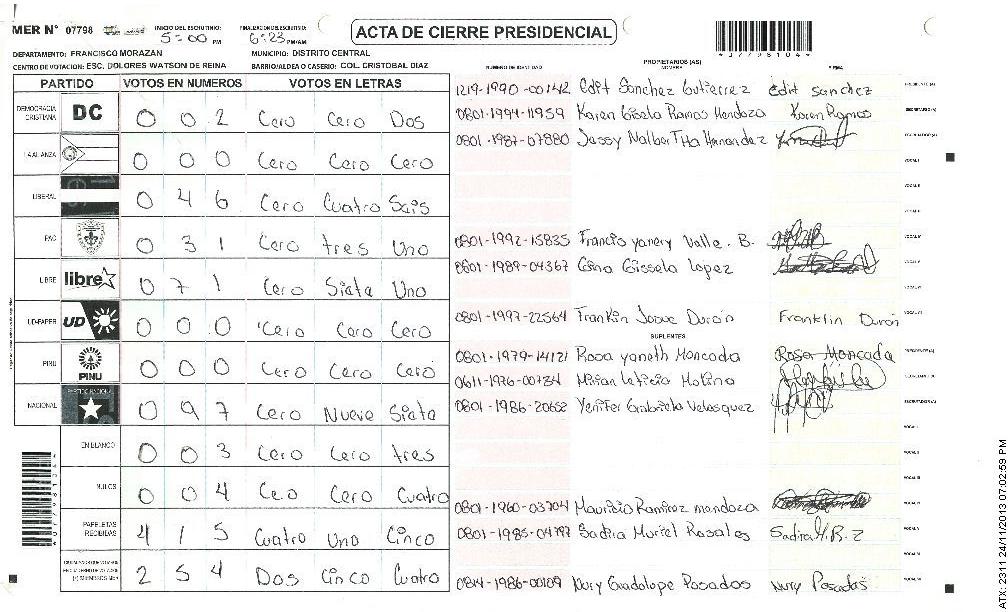 MER N° 07798 INICIO DEL ESCRUTINIO: 5:00 PM FINALIZACION DEL ESCRUTINIO: 6:23 PM/AM ACTA DE CIERRE PRESIDENCIAL
DEPARTAMENTO: FRANCISCO MORAZAN MUNICIPIO: DISTRITO CENTRAL
CENTRO DE VOTACION: ESC. DOLORES WATSON DE REINA BARRIO/ALDEA O CASERIO: COL. CRISTOBAL DIAZ
NUMERO DE IDENTIDAD PROPIETARIOS (AS) NOMBRE FIRMA
PARTIDO VOTOS EN NUMEROS VOTOS EN LETRAS
DEMOCRACIA CRISTIANA DC 0 0 2 Cero Cero Dos
LA ALIANZA 0 0 0 Cero Cero Cero
LIBERAL 0 4 6 Cero Cuatro Sais
PAC 0 3 1 Cero tres Uno
LIBRE libre 0 7 1 Cero Siata Uno
UD-FAPER UD 0 0 0 Cero Cero Cero
PINU PINU 0 0 0 Cero Cero Cero
NACIONAL 0 9 7 Cero Nueve Siata
EN BLANCO 0 0 3 Cero Cero tres
NULOS 0 0 4 Ceo Cero Cuatro
PAPELETAS RECIBIDAS 4 1 5 Cuatro Uno Cinco
2 5 4 Dos Cinco Cuatro
1219-1990-00142 Edit Sanchez Gutierrez edit sanchez PRESIDENTE (A)
0801-1994-11959 Karen Gisela Ramos Mendoza Karen Ramos SECRETARIO (A)
0801-1987-07880 Jessy Nalber Tita Hernandez
VOCAL I
0801-1992-15835 Francis yanery Valle. B.
0801-1989-04367 Gina Gissela Lopez
0801-1997-22564 Franklin Josue Duron Franklin Duron
SUPLENTES
0801-1979-14121 Rosa yaneth Moncada Rosa Moncada PRESIDENTE (A)
0611-1976-00734 Mirian Leticia Molina
0801-1986-20652 Yenifer Gabriela Velasquez
0801-1960-03704 Mauricio Ramirez mendoza
0801-1985-04797 Sadira Muriel Rosales Sadira M.R.Z
0814-1986-00109 Nury Guadalope Posados Nury Posadas
ATX-2311 24/11/2013 07:02:59 PM